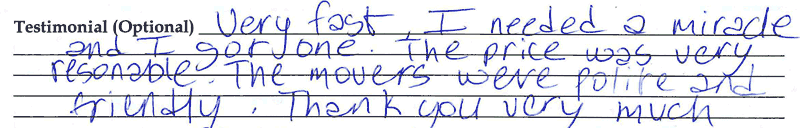 Testimonial (Optional) Very fast, I needed a miracle
and I got one. The price was very
resonable. The movers were polite and
friendly. Thank you very much